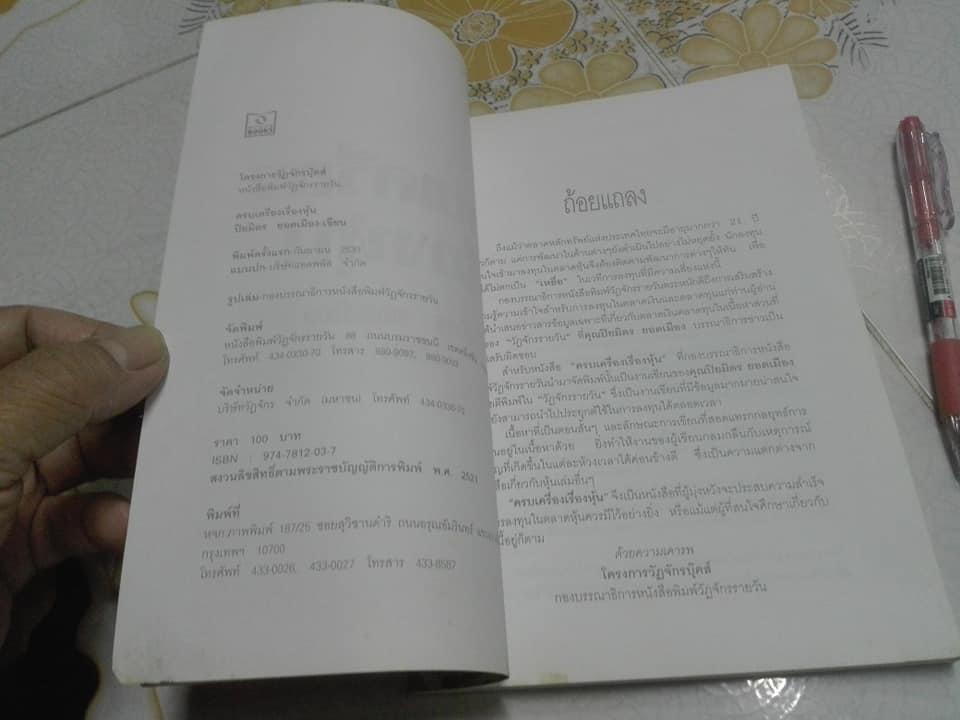 BOOKS
โครงการวัฏจักรบุ๊คส์
หนังสือพิมพ์วัฏจักรรายวัน
ครบเครื่องเรื่องหุ้น
ปิยมิตร ยอดเมือง เขียน
พิมพ์ครั้งแรก กันยายน
แบบปก บริษัทแอลพลัส จำกัด
รูปเล่ม กองบรรณาธิการหนังสือพิมพ์วัฏจักรรายวัน
จัดพิมพ์
หนังสือพิมพ์วัฏจักรรายวัน 88 ถนนบรมราชชนนี
โทรศัพท์ 434-0330-70 โทรสาร
จัดจำหน่าย
บริษัทวัฏจักร จำกัด (มหาชน) โทรศัพท์ 434-0330-70
ราคา 100 บาท
ISBN : 974-7812-03-7
สงวนลิขสิทธิ์ตามพระราชบัญญัติการพิมพ์ พ.ศ. 2521
พิมพ์ที่
หจก.ภาพพิมพ์ 187/25 ซอยสุวิชานดำริ ถนนอรุณอัมรินทร์
กรุงเทพฯ 10700
โทรศัพท์ 433-0026, 433-0027 โทรสาร 433-8587
ถ้อยแถลง
ถึงแม้ว่าตลาดหลักทรัพย์แห่งประเทศไทยจะมีอายุมากกว่า 21 ปี
ก็ตาม แต่การพัฒนาในด้านต่างๆยังดำเนินไปอย่างไม่หยุดยั้ง นักลงทุน
เข้ามาลงทุนในตลาดหุ้นจึงต้องติดตามพัฒนาการต่างๆให้ทัน เพื่อ
ได้ไม่ตกเป็น "เหยื่อ" ในเวทีการลงทุนที่มีความเสี่ยงแห่งนี้
กองบรรณาธิการหนังสือพิมพ์วัฏจักรรายวันตระหนักดีถึงการเสริมสร้าง
ความเข้าใจสำหรับการลงทุนในตลาดเงินและตลาดทุนแก่ท่านผู้อ่าน
นำเสนอข่าวสารข้อมูลเฉพาะที่เกี่ยวกับตลาดเงินตลาดทุนในเนื้อหาส่วนที่
ของ "วัฏจักรรายวัน" ที่คุณปิยมิตร ยอดเมือง บรรณาธิการข่าวเป็น
รับผิดชอบ
สำหรับหนังสือ "ครบเครื่องเรื่องหุ้น" ที่กองบรรณาธิการหนังสือ
วัฏจักรรายวันนำมาจัดพิมพ์นั้นเป็นงานเขียนของคุณปิยมิตร ยอดเมือง
ตีพิมพ์ใน "วัฏจักรรายวัน" ซึ่งเป็นงานเขียนที่มีข้อมูลมากมายน่าสนใจ
ยังสามารถนำไปประยุกต์ใช้ในการลงทุนได้ตลอดเวลา
เนื้อหาที่เป็นตอนสั้นๆ และลักษณะการเขียนที่สอดแทรกกลยุทธ์การ
อยู่ในเนื้อหาด้วย ยิ่งทำให้งานของผู้เขียนกลมกลืนกับเหตุการณ์
ที่เกิดขึ้นในแต่ละห้วงเวลาได้ค่อนข้างดี ซึ่งเป็นความแตกต่างจาก
เกี่ยวกับหุ้นเล่มอื่นๆ
"ครบเครื่องเรื่องหุ้น" จึงเป็นหนังสือที่ผู้มุ่งหวังจะประสบความสำเร็จ
การลงทุนในตลาดหุ้นควรมีไว้อย่างยิ่ง หรือแม้แต่ผู้ที่สนใจศึกษาเกี่ยวกับ
อยู่ก็ตาม
ด้วยความเคารพ
โครงการวัฏจักรบุ๊คส์
กองบรรณาธิการหนังสือพิมพ์วัฏจักรรายวัน